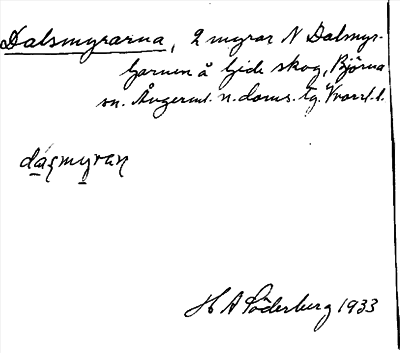 Dalsmyrarna, 2 myrar N Dalmyr-
tjärnen å Gide skog, Björna
sn. Ångerml. n. doms. tg. Västl. l.
dasmyran
H A Söderberg 1933